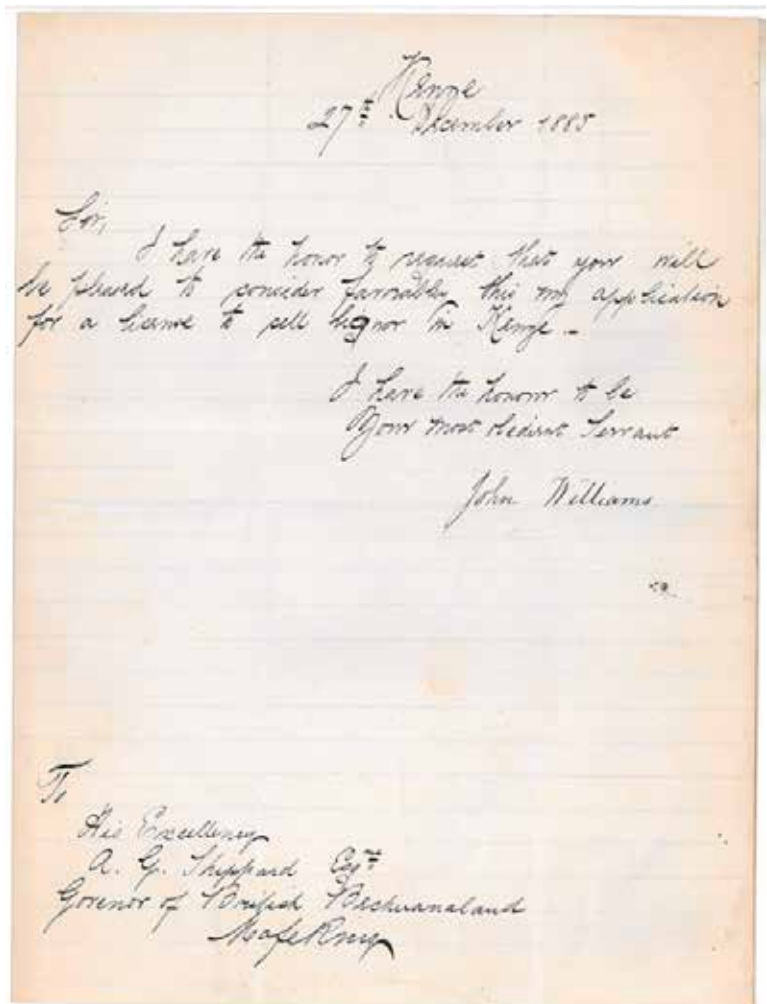 27th December 1885
Sir,
I have the honor to request that your will
be pleased to consider favorably this my application
for a license to sell liquor in Kanye -
I have the honour to be
Your most obedient Servant
John Williams
To
His Excellency
A. G. Shippard Esqre
Govenor of British Bechuanaland
Mafeking